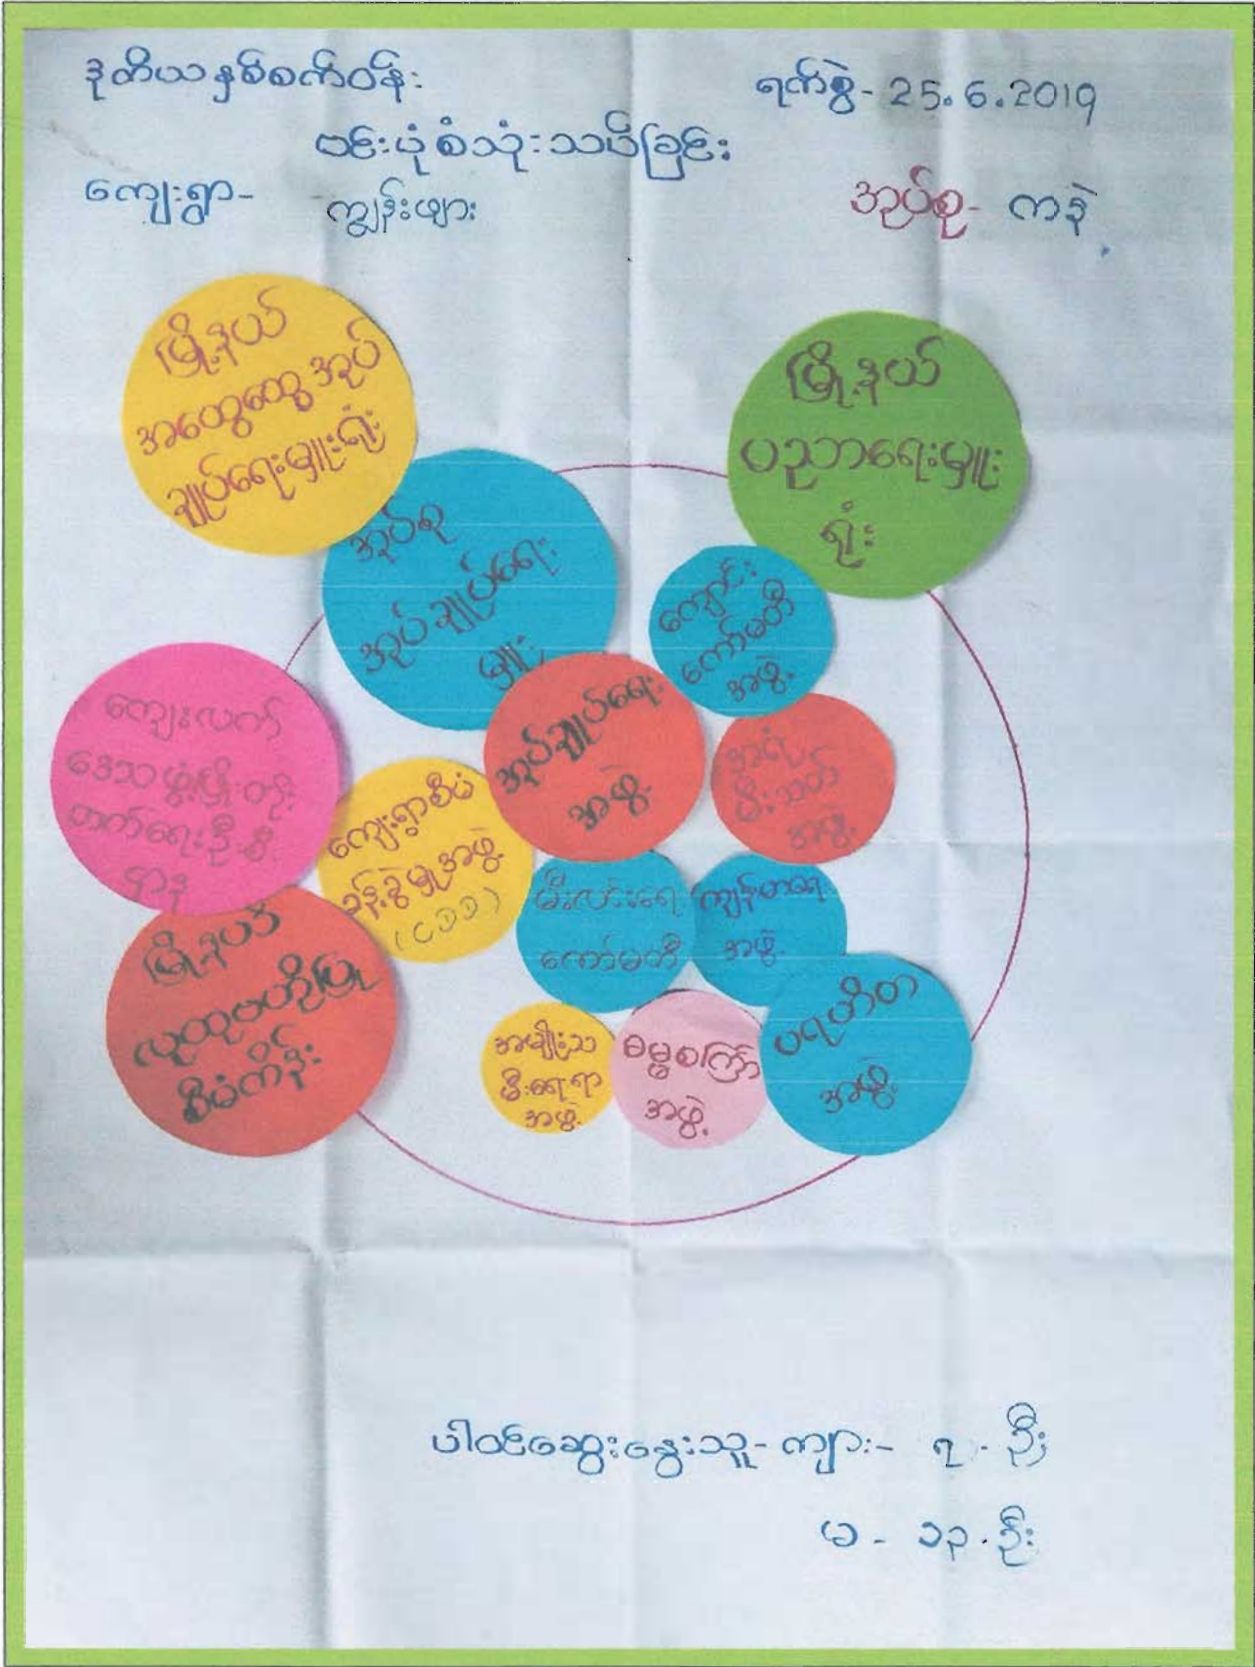 ဒုတိယနှစ်စက်ဝန်း
ရက်စွဲ- 25.6.2019
ဗင်းပုံစံသုံးသပ်ခြင်း
ကျေးရွာ- ကျွန်းဖျား
အုပ်စု- ကနဲ
မြို့နယ်
အထွေထွေအုပ်
ချုပ်ရေးမှူးရုံး
မြို့နယ်
ပညာရေးမှူး
ရုံး
အုပ်စု
အုပ်ချုပ်ရေး
မှူး
ကျောင်း
ကော်မတီ
အဖွဲ့
ကျေးလက်
ဒေသဖွံ့ဖြိုးတိုး
တက်ရေးဦးစီး
ဌာန
အုပ်ချုပ်ရေး
အဖွဲ့
အရံ
မီးသတ်
အဖွဲ့
ကျေးရွာစီမံ
ခန့်ခွဲမှုအဖွဲ့
(CDD)
မီးလင်းရေး
ကော်မတီ
ကျန်းမာရေး
အဖွဲ့
မြို့နယ်
လူထုဗဟိုပြု
စီမံကိန်း
အမျိုးသ
မီးရေးရာ
အဖွဲ့
ဓမ္မစကြာ
အဖွဲ့
ပရဟိတ
အဖွဲ့
ပါဝင်ဆွေးနွေးသူ- ကျား- ၇ - ဦး
မ - ၁၃ - ဦး